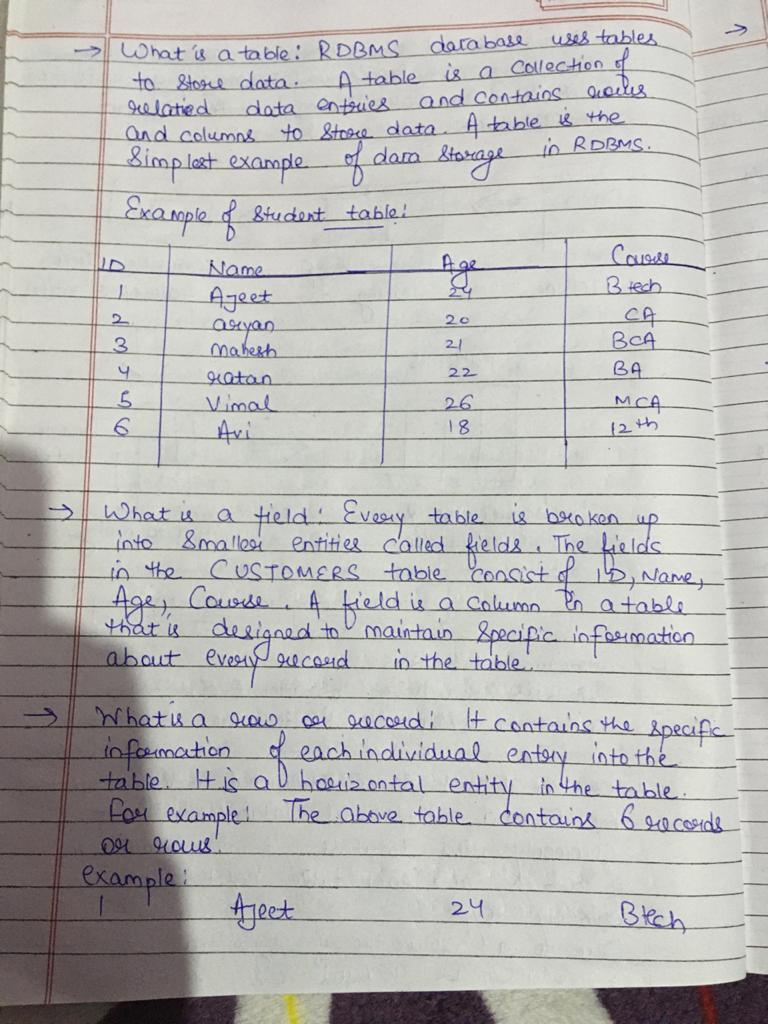 → What is a table: RDBMS darabase uses tables
to store data. A table is a collection of
related data entries and contains rows
and columns to store data. A table is the
simplest example of dara storage in RDBMS.
Example of student table:
ID Name Age Course
1 Ajeet 24 B tech
2 aryan 20 CA
3 mahesh 21 BCA
4 ratan 22 BA
5 Vimal 26 MCA
6 Avi 18 12th
→ What is a field: Every table is broken up
into smaller entities called fields. The fields
in the CUSTOMERS table consist of ID, Name,
Age, Course. A field is a column in a table
that is designed to maintain specific information
about every record in the table.
→ What is a row or record: It contains the specific
information of each individual entry into the
table. It is a horizontal entity in the table.
For example: The above table contains 6 records
or rows.
example:
1 Ajeet 24 Btech
→